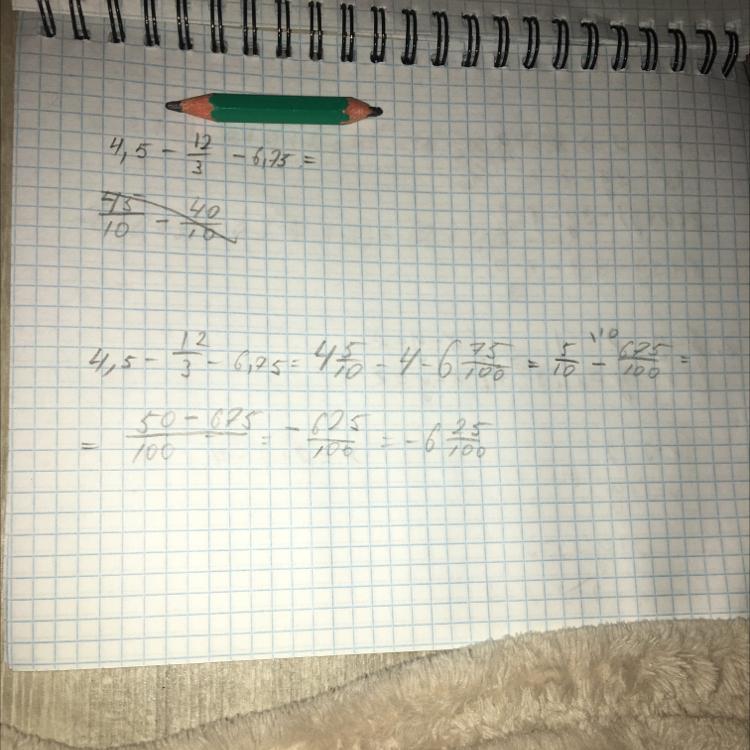 4,5 - 12/3 - 6,75 =
45/10 - 40/10
4,5 - 12/3 - 6,75 = 4 5/10 - 4 - 6 75/100 = 5/10 \10 - 675/100 =
= 50 - 675/100 = - 625/100 = - 6 25/100